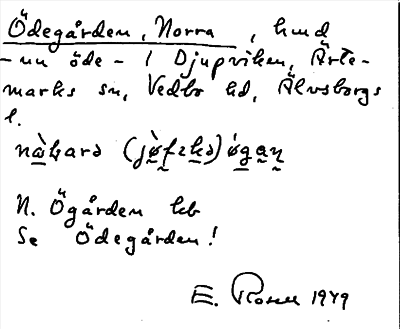 Ödegården, Norra, hmd
- nu öde - i Djupviken, Ärte-
marks sn, Vedbo hd, Älvsborgs
l.
N. Ögården kb
Se Ödegården!
E. Rosell 1949